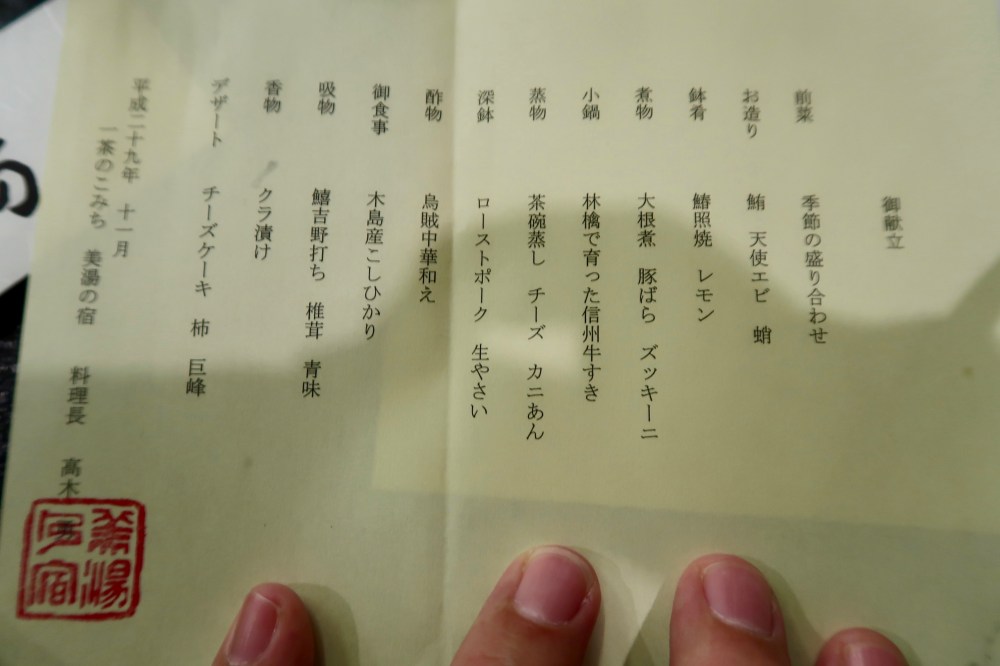 御献立
前菜 季節の盛り合わせ
お造り 鮪 天使エビ 蛸
鉢肴 鰆照焼 レモン
煮物 大根煮 豚ばら ズッキーニ
小鍋 林檎で育った信州牛すき
蒸物 茶碗蒸し チーズ カニあん
深鉢 ローストポーク 生やさい
酢物 烏賊中華和え
御食事 木島産こしひかり
吸物 鱚吉野打ち 椎茸 青味
香物 クラ漬け
デザート チーズケーキ 柿 巨峰
平成二十九年 十一月
一茶のこみち 美湯の宿 料理長 高木
美湯之宿